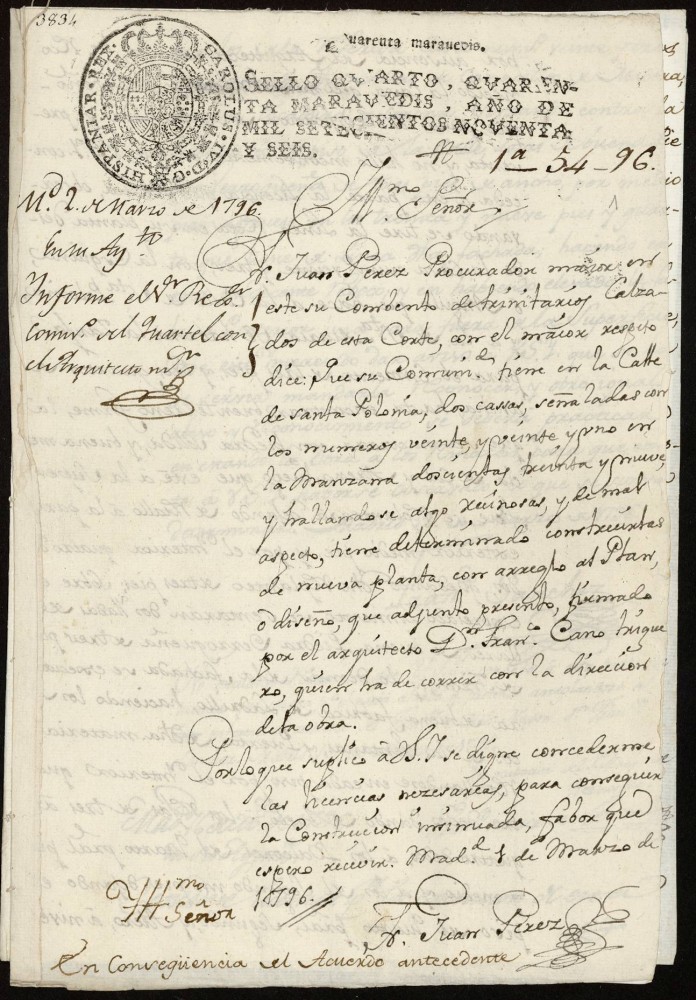 3834
Quarenta maravedis.
CAROLUS·IV·D·G·HISPANIAR·REX
SELLO QVARTO, QVAREN-
TA MARAVEDIS, AÑO DE
MIL SETECIENTOS NOVENTA
Y SEIS.
1ª-54-96.
M.d 2. de Marzo de 1796.
En su Ay.to
Informe el S.r Reg.r
Comis.o del Quartel con
el Arquitecto m.r
Yll.mo Señor
Fr. Juan Perez Procurador maior en
este su Combento de trinitarios Calza-
dos de esta Corte, con el maior respeto
dice: Que su Comuni.d tiene en la Calle
de santa Polonia, dos cassas, señaladas con
los numeros veinte, y veinte y uno en
la Manzana doscientas treinta y nueve,
y hallandose algo ruinosas, y de mal
aspecto, tiene determinado construirlas
de nueva planta, con arreglo al Plan,
ò diseño, que adjunto presento, firmado
por el arquitecto D.n Fran.co Cano trigue
ro, quien ha de correr con la direccion
de la obra.
Por lo que suplico à V.S.I se digne concederme
las licencias nezesarias, para conseguir
la Construcion insinuada, fabor que
espero recivir. Mad.d 1 de Marzo de
1796.
Yll.mo
Señor
Fr. Juan Perez
En Conseqüencia el Acuerdo antecedente